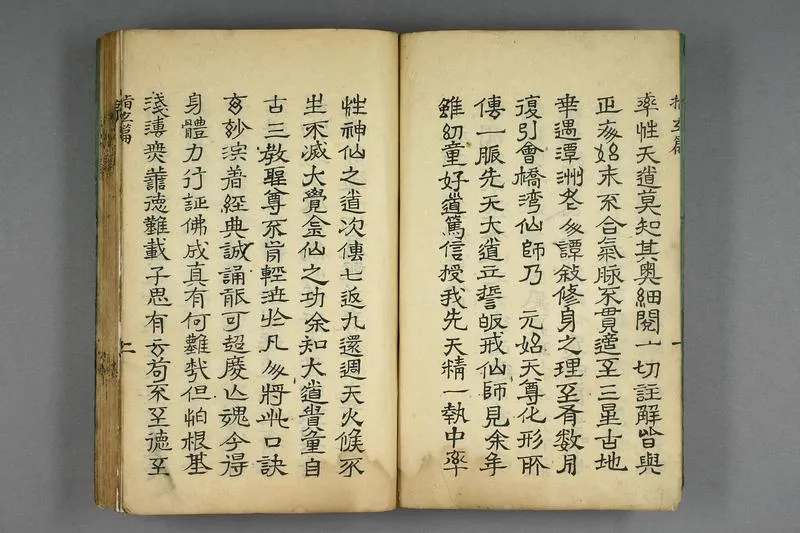 指玄篇
率性天道莫知其奥細閱一切註解皆與
正亥始末不合氣脉不貫適至三星古地
幸遇潭洲老人譚敍修身之理至有數月
復引會橋湾仙師乃 元始天尊化形所
傳一脈先天大道立誓皈戒仙師見余年
雖幼童好道篤信授我先天精一執中率
一
性神仙之道次傳七返九還週天火候不
生不滅大覺金仙之功余知大道貴重自
古三教聖尊不肯輕泄於凡人將此口訣
玄妙演著經典誠誦能可超度亡魂今得
身體力行証佛成真有何難哉但怕根基
淺薄无善德難載子思有云苟不至德至
指玄篇
二